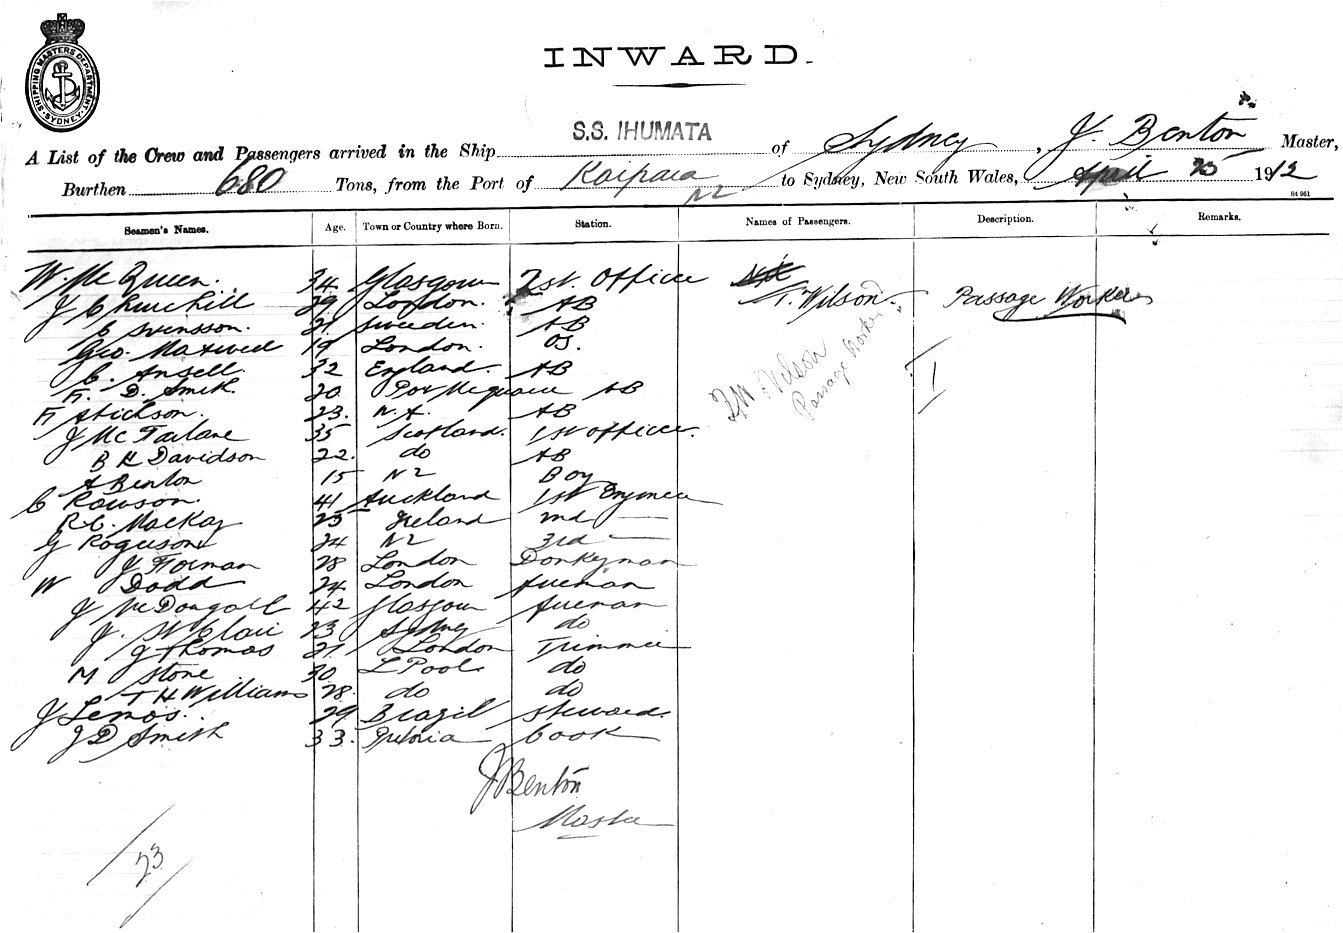 SHIPPING MASTERS DEPARTMENT · SYDNEY ·
INWARD.
A List of the Crew and Passengers arrived in the Ship S.S. IHUMATA of Sydney, J. Benton Master,
Burthen 680 Tons, from the Port of Kaipara NZ to Sydney, New South Wales, April 25 1912
84 961
Seamen's Names. Age. Town or Country where Born. Station. Names of Passengers. Description. Remarks.
W. McQueen. 34 Glasgow 2st. Officer T. Wilson. Passage Worker
J Churchill 29 London. AB
C Svensson. 21 Sweeden. AB
Geo. Maxwell 19 London. OS.
C. Ansell. 32 England. AB
F. D. Smith. 20 Port Mcquarie AB
F Stickson. 23. N.A. AB
J McFarlane 35 Scotland. 1st officer.
B H Davidson 22. do AB
A Benton 15 NZ Boy
C Rowson. 41 Auckland 1st Engineer
R.C. Mackay 25 Ireland 2nd —
G Roguson 24 NZ 3rd —
J Forman 28 London Donkeyman
W Dodd 24 London fireman
J McDougall 42 Glasgow fireman
J. St Clair 23 Sydney do
J Thomas 21 London Trimmer
M Stone 30 L Pool do
T H Williams 28. do do
J Lemos. 29 Brazil Steward.
J D Smith 33. Pretoria Cook
Wilson
Passage Worker
1
J Benton
Master
23